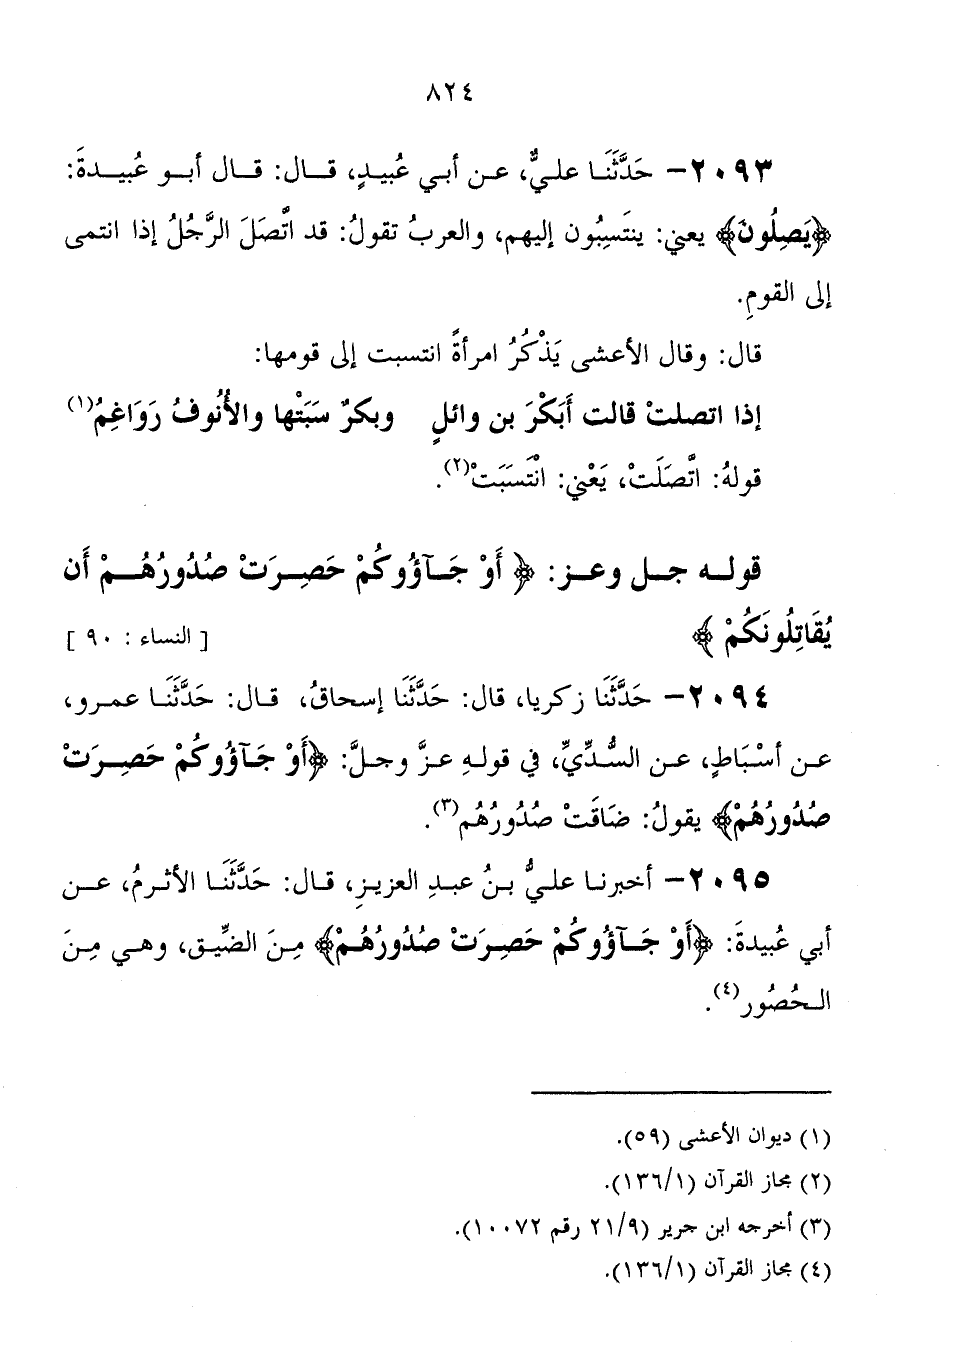 ٨٢٤
٢٠٩٣- حَدَّثَنَا عليٌّ، عن أبي عُبيدٍ، قال: قال أبو عُبيدةَ:
﴿يَصِلُونَ﴾ يعني: ينتَسِبُون إليهم، والعربُ تقولُ: قد اتَّصَلَ الرَّجُلُ إذا انتمى
إلى القومِ.
قال: وقال الأعشى يَذْكُرُ امرأةً انتسبت إلى قومها:
إذا اتصلتْ قالت أَبَكْرَ بن وائلٍ وبكرٌ سَبَتْها والأُنُوفُ رَوَاغِمُ(١)
قولهُ: اتَّصَلَتْ، يَعْني: انْتَسَبَتْ(٢).
قوله جل وعز: ﴿ أَوْ جَآؤُوكُمْ حَصِرَتْ صُدُورُهُمْ أَن
يُقَاتِلُونَكُمْ ﴾ [ النساء : ٩٠ ]
٢٠٩٤- حَدَّثَنَا زكريا، قال: حَدَّثَنَا إسحاقُ، قال: حَدَّثَنَا عمرو،
عن أسْبَاطٍ، عن السُّدِّيِّ، في قولهِ عزَّ وجلَّ: ﴿أَوْ جَآؤُوكُمْ حَصِرَتْ
صُدُورُهُمْ﴾ يقولُ: ضَاقَتْ صُدُورُهُم(٣).
٢٠٩٥- أخبرنا عليُّ بنُ عبدِ العزيزِ، قال: حَدَّثَنَا الأثرمُ، عن
أبي عُبيدةَ: ﴿أَوْ جَآؤُوكُمْ حَصِرَتْ صُدُورُهُمْ﴾ مِنَ الضِّيق، وهي مِنَ
الحُصُور(٤).
(١) ديوان الأعشى (٥٩).
(٢) مجاز القرآن (١٣٦/١).
(٣) أخرجه ابن جرير (٢١/٩ رقم ١٠٠٧٢).
(٤) مجاز القرآن (١٣٦/١).